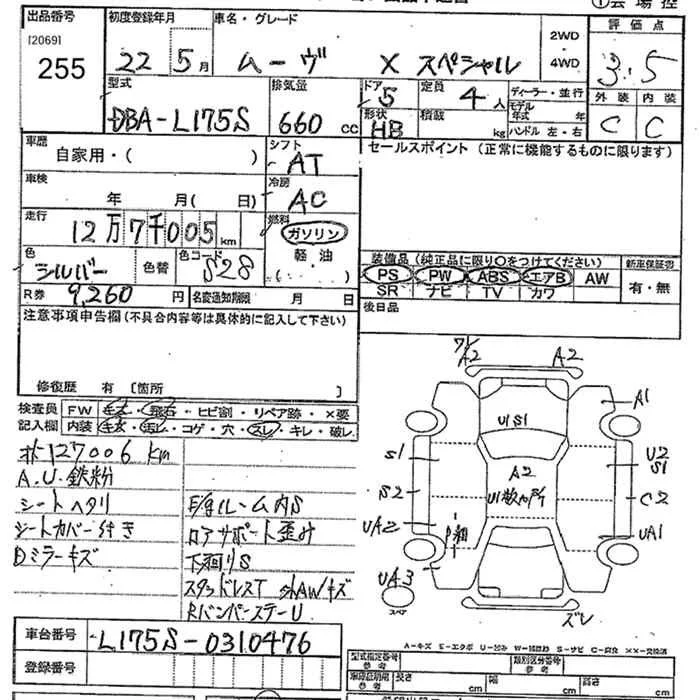 出品番号 初度登録年月 車名・グレード 2WD・4WD 評価点
[2069]
255
22 5月 ムーヴ X スペシャル 3.5
型式 排気量 ドア 5 定員 4人 ディーラー・並行 外装 内装
DBA-L175S 660 cc 形状 HB 積載 kg モデル年式 年 ハンドル 左・右 C C
車歴 シフト セールスポイント(正常に機能するものに限ります)
自家用・( ) AT
車検 年 月( 日) 冷房 AC
走行 12万7千005km 燃料 ガソリン
軽・油
色 シルバー 色替 色コード S28 (・・・)
装備品(純正品に限り○をつけてください) 新車保証書
PS PW ABS エアB AW 有・無
SR ナビ TV カワ
R券 9,260円 名変通知期限 月 日 後日品
注意事項申告欄(不具合内容等は具体的に記入して下さい)
修復歴 有 〔箇所 〕
検査員 FW キズ・飛石・ヒビ割・リペア跡・×要
記入欄 内装 キズ・汚レ・コゲ・穴・スレ・キレ・破レ
127006 km
A.U.鉄粉
シートヘタリ
シートカバー付き
Dミラーキズ
ルーム内S
ロアサポート歪み
下廻りS
スタッドレスT 外AWキズ
RバンパーステーU
ワレ
A2 A2
A1
U1S1
S1
U2
S1
A2
S2
C2
UA2
UA1
UA3
スペア
ズレ
A-キズ E-エクボ U-凹ミ W-補修跡 S-サビ C-腐食 ××-交換済
車台番号 L175S-0310476
登録番号
型式指定番号 参考 類別区分番号 参考
参考 長さ cm 幅 cm 高さ cm